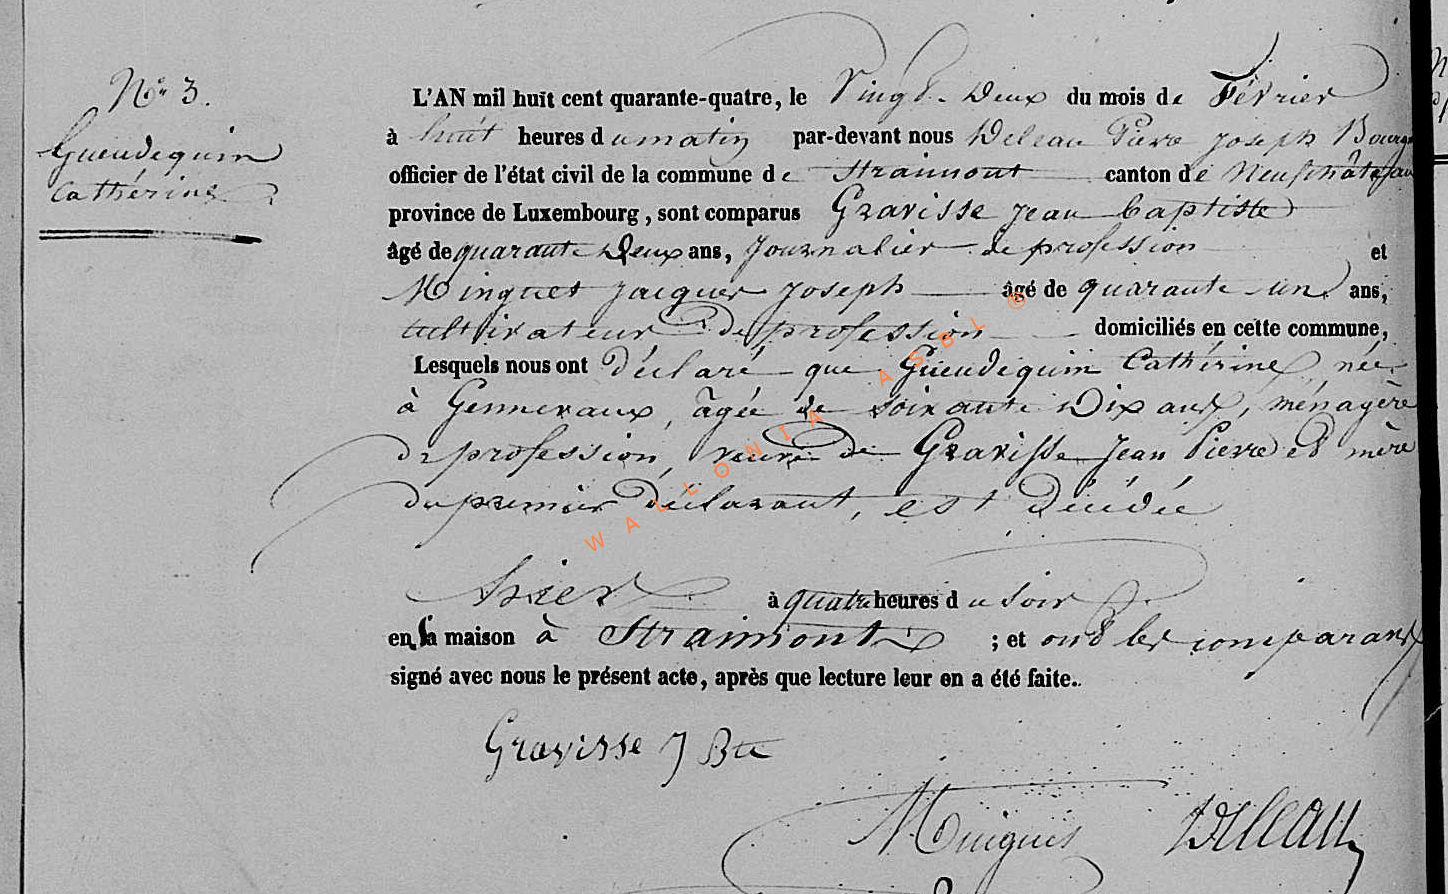 N° 3.
Gueudequin
Cathérine
L'AN mil huit cent quarante-quatre, le Vingt-Deux du mois de Février
à huit heures du matin par-devant nous Deleau Pierre Joseph Bourg
officier de l'état civil de la commune de Straimont canton de Neufchâteau
province de Luxembourg, sont comparus Gravisse Jean Baptiste
âgé de quarante Deux ans, Journalier de profession et
Minguet Jacques Joseph âgé de quarante-un ans,
cultivateur de profession domiciliés en cette commune,
Lesquels nous ont déclaré que Gueudequin Cathérine née
à Gennevaux, âgée de soixante Dix ans, ménagère
de profession, veuve de Gravisse Jean Pierre et mère
du premier Déclarant, est Décédée
hier à quatre heures du soir
en sa maison à Straimont ; et ont les comparans
signé avec nous le présent acte, après que lecture leur en a été faite.
Gravisse J Bte
Minguet Deleau
WALLONIA ASBL ©